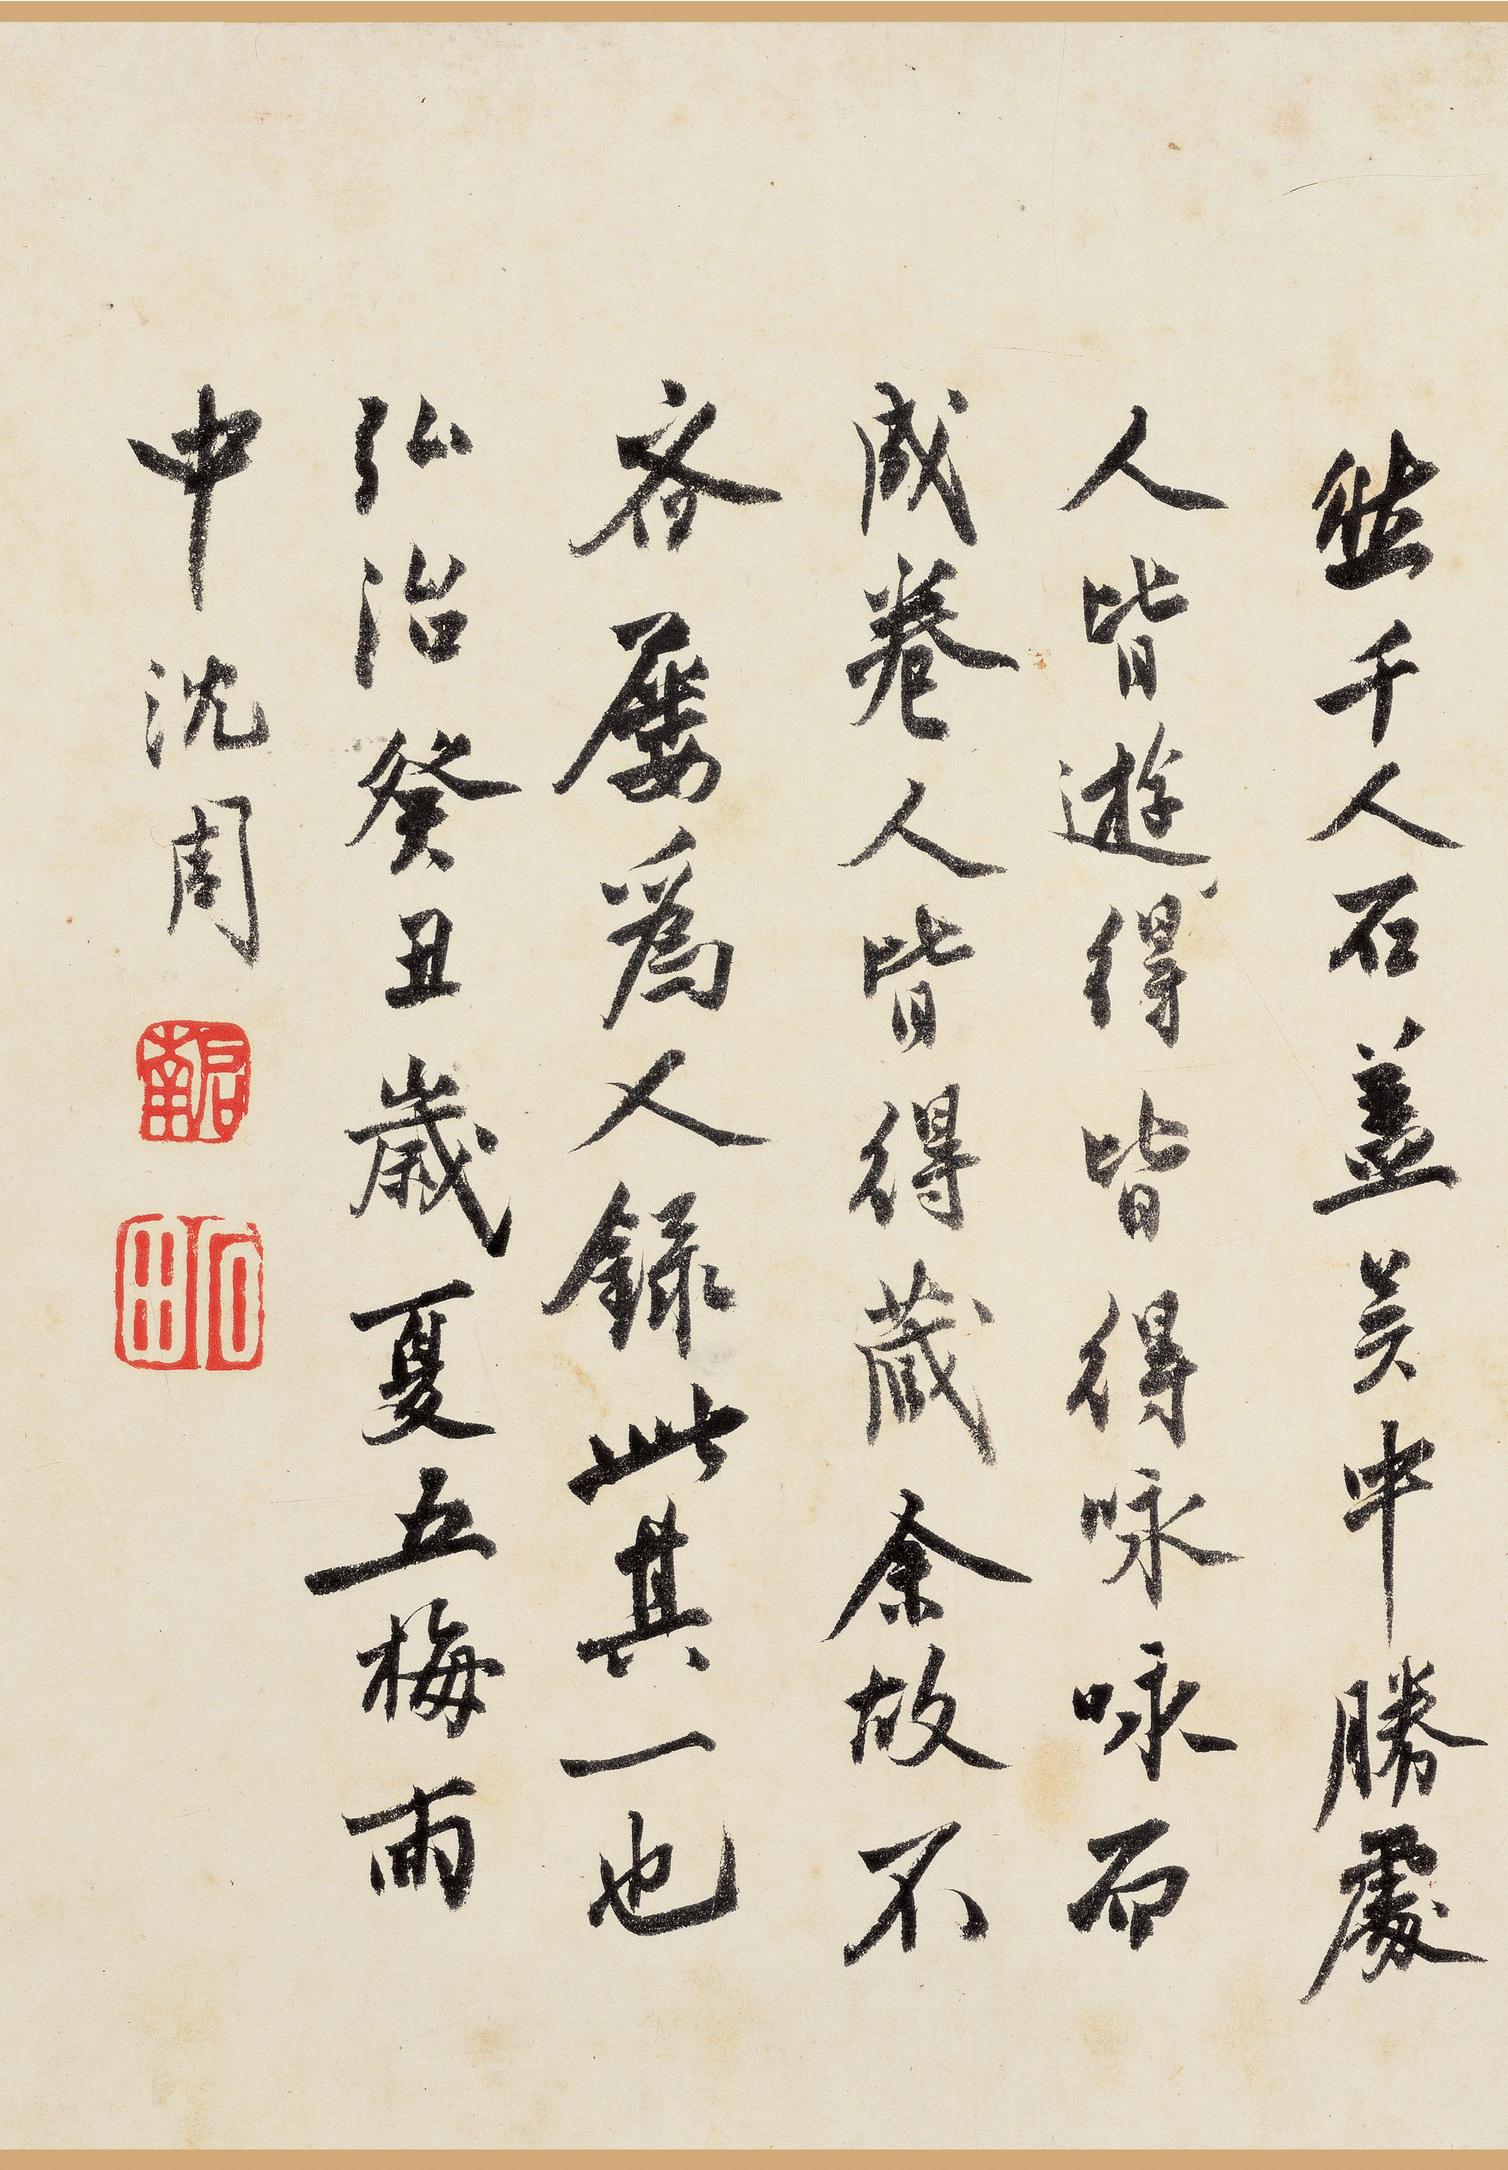 然千人石蓋吴中勝處
人皆遊得皆得咏咏而
成卷人皆得藏余故不
吝屡爲人録此其一也
弘治癸丑歲夏五梅雨
中沈周
啓南
石田